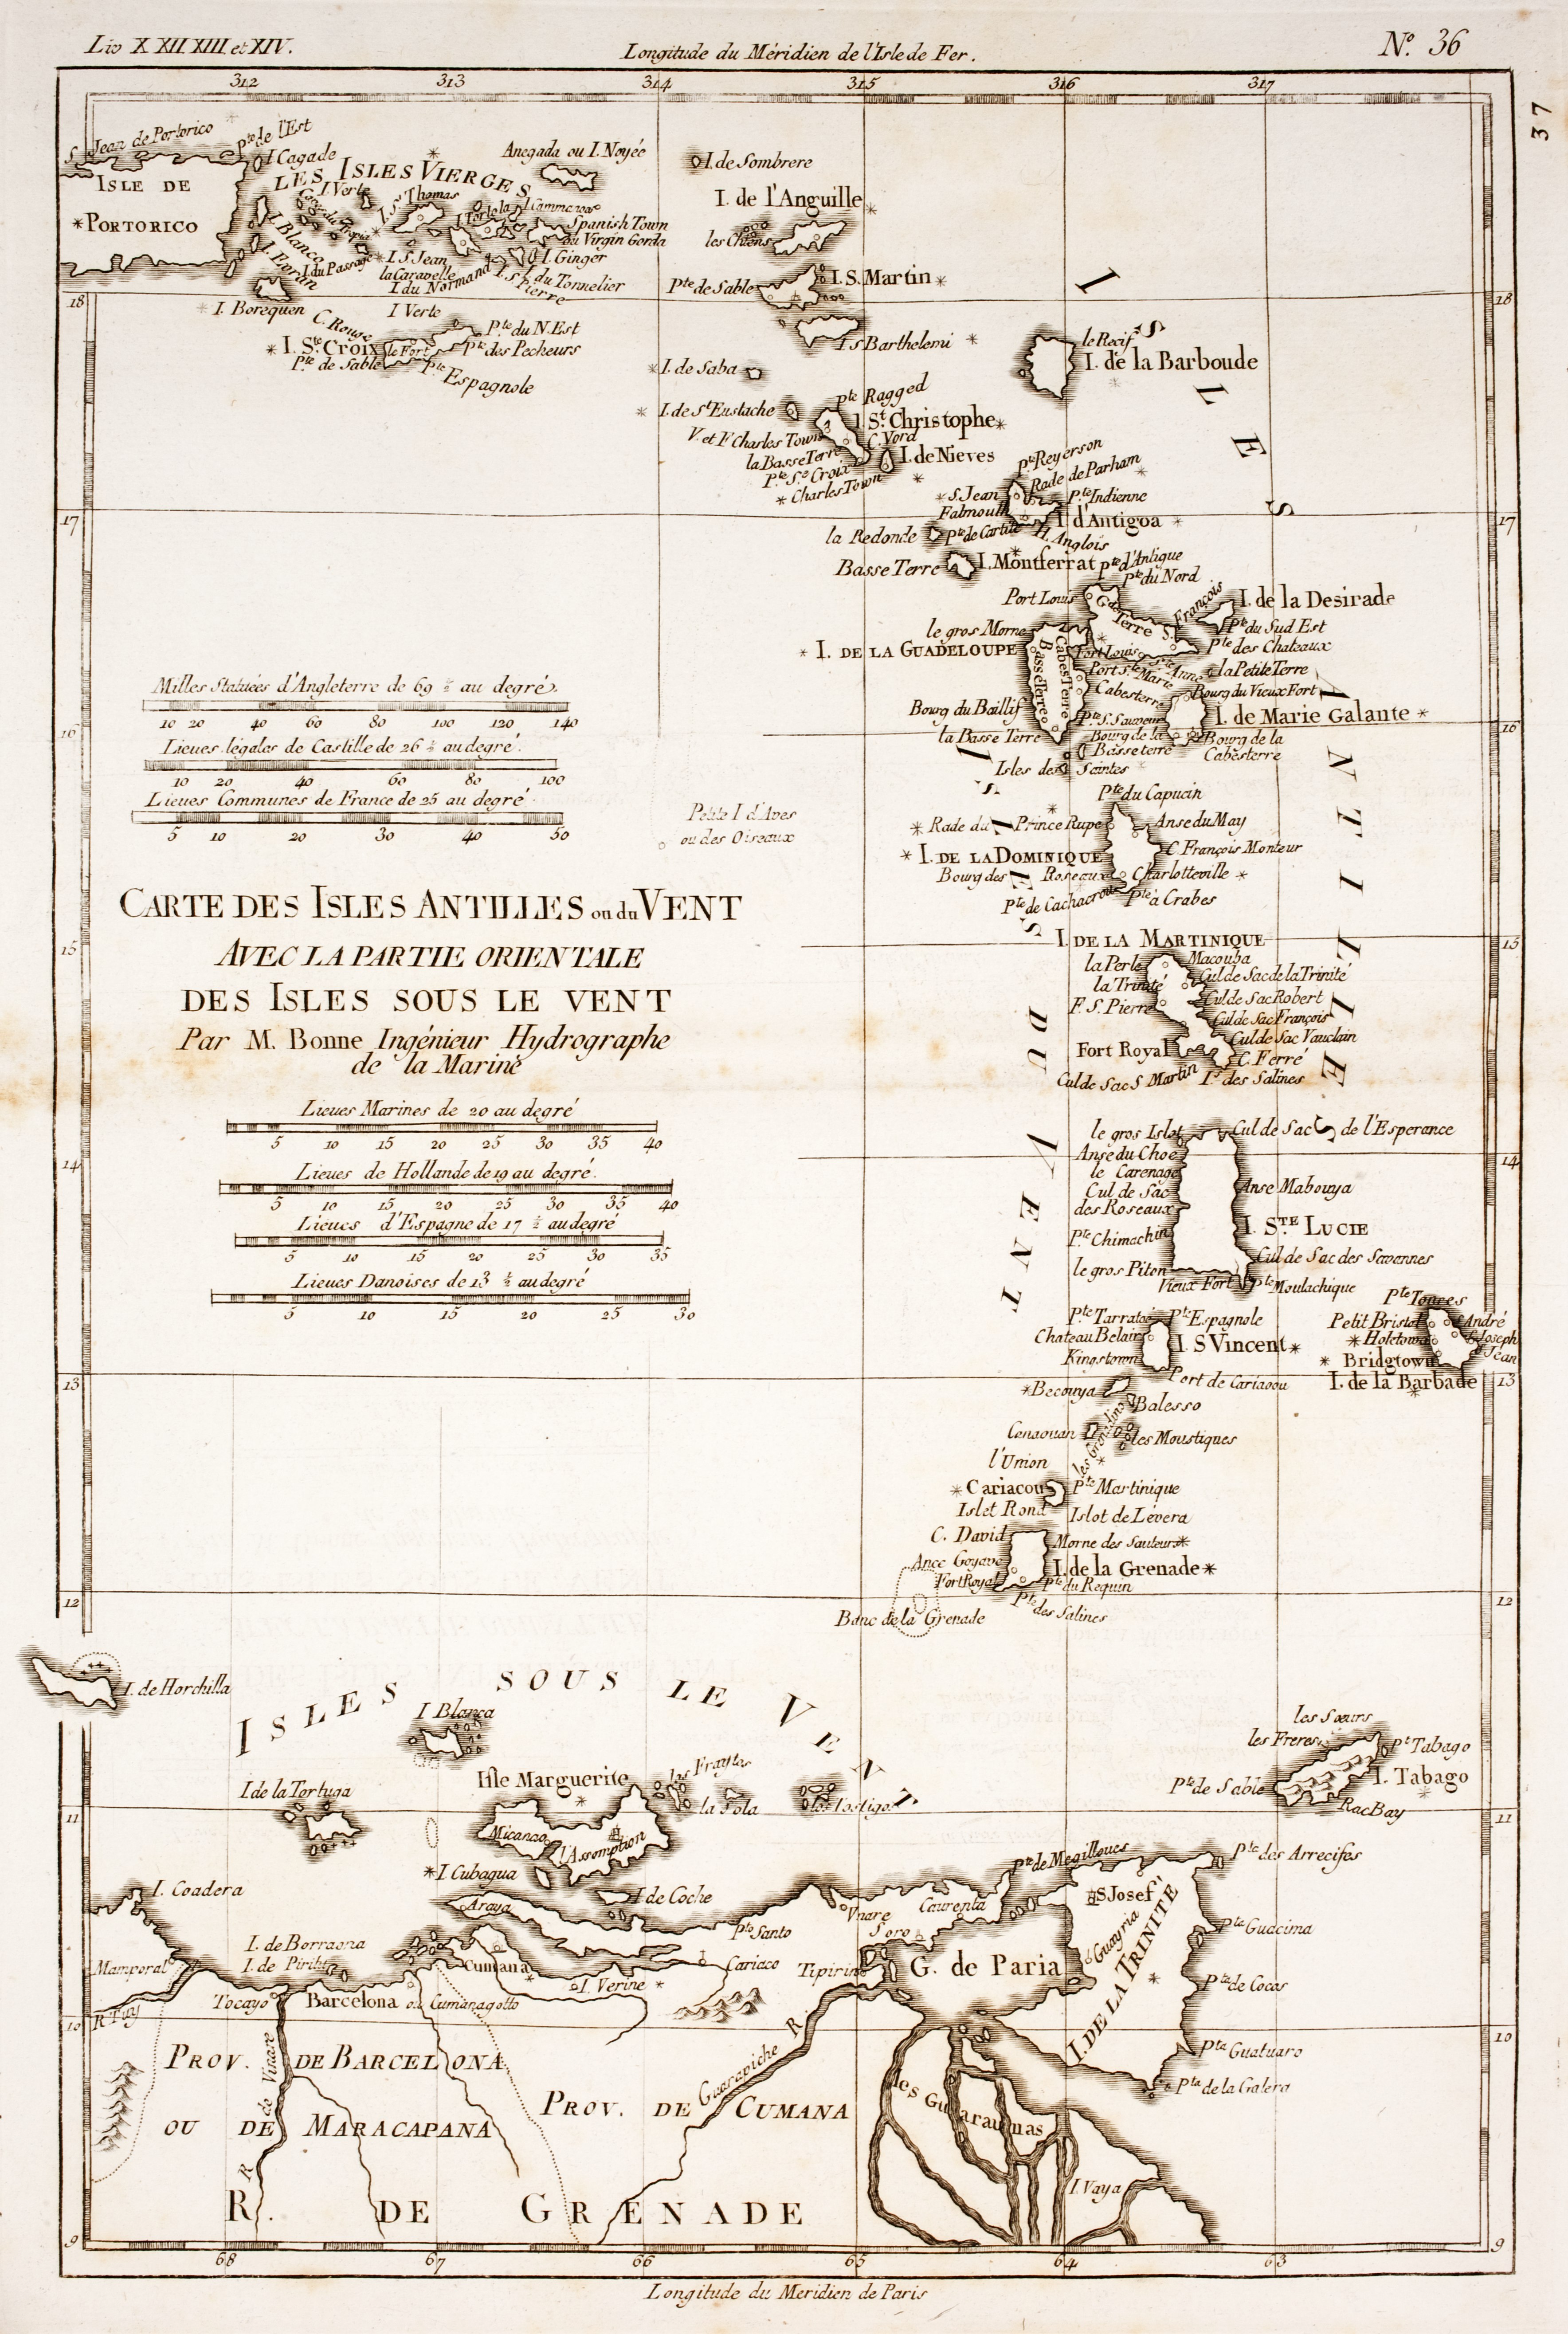 Liv X XII XIII et XIV.
Longitude du Méridien de l'Isle de Fer.
N.º 36
37
312 313 314 315 316 317
S. Jean de Portorico
P.te de l'Est
I Cagade
LES ISLES VIERGES
Anegada ou I. Noyée
I. de Sombrere
ISLE DE
PORTORICO
I Verte
I. S.t Thomas
I Tortola
Spanish Town
ou Virgin Gorda
I. Blanco
I. du Passage
I. S. Jean
la Caravelle
I. du Normand
I. Ginger
I. du Tonnelier
I. S. Pierre
I. Borequen
I. de l'Anguille
les Chiens
P.te de Sable
I. S. Martin
18
18
C. Rouge
I Verte
P.te du N. Est
I. S.te Croix
le Fort
P.te des Pecheurs
P.te de Sable
P.te Espagnole
I S Barthelemi
le Recif
I. de la Barboude
I. de Saba
I. de S.t Eustache
P.te Ragged
I S.t Christophe
V. et F. Charles Town
C. Nord
la Basse Terre
I. de Nieves
P.te S.te Croix
Charles Town
P.te Reyerson
Rade de Parham
S. Jean
P.te Indienne
Falmouth
I d'Antigoa
17
17
la Redonde
H. Anglois
Basse Terre
I. Montferrat
P.te d'Antigue
P.te du Nord
Port Louis
G.de Terre
S. François
I. de la Desirade
le gros Morne
P.te du Sud Est
I. DE LA GUADELOUPE
Fort Louis
S.te Anne
P.te des Chateaux
Basse Terre
Cabes Terre
Port S.te Marie
la Petite Terre
Cabesterre
Bourg du Vieux Fort
Bourg du Baillif
P.te S. Sauveur
I. de Marie Galante
la Basse Terre
Bourg de la
Basseterre
Bourg de la
Cabesterre
16
16
Isles des Saintes
Milles Statuées d'Angleterre de 69 ½ au degré.
10 20 40 60 80 100 120 140
Lieues légales de Castille de 26 ½ au degré.
10 20 40 60 80 100
Lieues Communes de France de 25 au degré
5 10 20 30 40 50
Petite I d'Aves
ou des Oiseaux
P.te du Capucin
Rade du Prince Rupe
Anse du May
I. DE LA DOMINIQUE
C François Monteur
Bourg des Roseaux
Charlotteville
P.te de Cachacrou
P.te à Crabes
CARTE DES ISLES ANTILLES ou du VENT
AVEC LA PARTIE ORIENTALE
DES ISLES SOUS LE VENT
Par M. Bonne Ingénieur Hydrographe
de la Marine
15
15
I. DE LA MARTINIQUE
la Perle
Macouba
la Trinité
Cul de Sac de la Trinité
F. S. Pierre
Cul de Sac Robert
Cul de Sac François
Cul de Sac Vauclain
Fort Royal
C. Ferré
Cul de Sac S Martin
I.s des Salines
Lieues Marines de 20 au degré
5 10 15 20 25 30 35 40
Lieues de Hollande de 19 au degré.
5 10 15 20 25 30 35 40
Lieues d'Espagne de 17 ½ au degré
5 10 15 20 25 30 35
Lieues Danoises de 13 ½ au degré
5 10 15 20 25 30
ISLES ANTILLES
ISLES DU VENT
le gros Islot
Cul de Sac de l'Esperance
14
14
Anse du Choc
le Carenage
Cul de Sac
des Roseaux
Anse Mabouya
P.te Chimachin
I. S.TE LUCIE
Cul de Sac des Savannes
le gros Piton
Vieux Fort
P.te Moulachique
P.te Espagnole
Chateau Belair
I. S Vincent
Kingstown
Petit Bristol
S André
Holetown
S Joseph
S Jean
Bridgtown
I. de la Barbade
13
13
Port de Cariacou
Becouya
Balesso
Canaouan
les Moustiques
l'Union
Cariacou
P.te Martinique
Islet Rond
Islot de Levera
C. David
Morne des Sauteurs
Ance Goyave
I. de la Grenade
Fort Royal
P.te du Requin
P.te des Salines
Banc de la Grenade
12
12
I. de Horchilla
ISLES SOUS LE VENT
I Blanca
les Sœurs
les Freres
P.te Tabago
P.te de Sable
I. Tabago
Rac Bay
I de la Tortuga
Isle Marguerite
los Frayles
la Sola
los Testigos
11
11
Micanao
l'Assomption
I Cubagua
I de Coche
Araya
P.te de Megilloues
P.te des Arrecifes
I. Coadera
S Josef
Unare
Caurenta
P.to Santo
Soro
Guayria
P.ta Guacima
I. de Borracha
I. de Piritu
Mamporal
Cumana
Cariaco
I. Verine
Tipirin
G. de Paria
I. DE LA TRINITÉ
P.ta de Cocos
Tocayo
Barcelona ou Cumanagotto
R Tuy
10
10
P.ta Guatuaro
P.ta de la Galera
PROV. DE BARCELONA
OU DE MARACAPANA
R de Vnare
PROV. DE CUMANA
Guarapiche R
les Guaraunas
I. Vaya
R. DE GRENADE
9
9
68 67 66 65 64 63
Longitude du Meridien de Paris